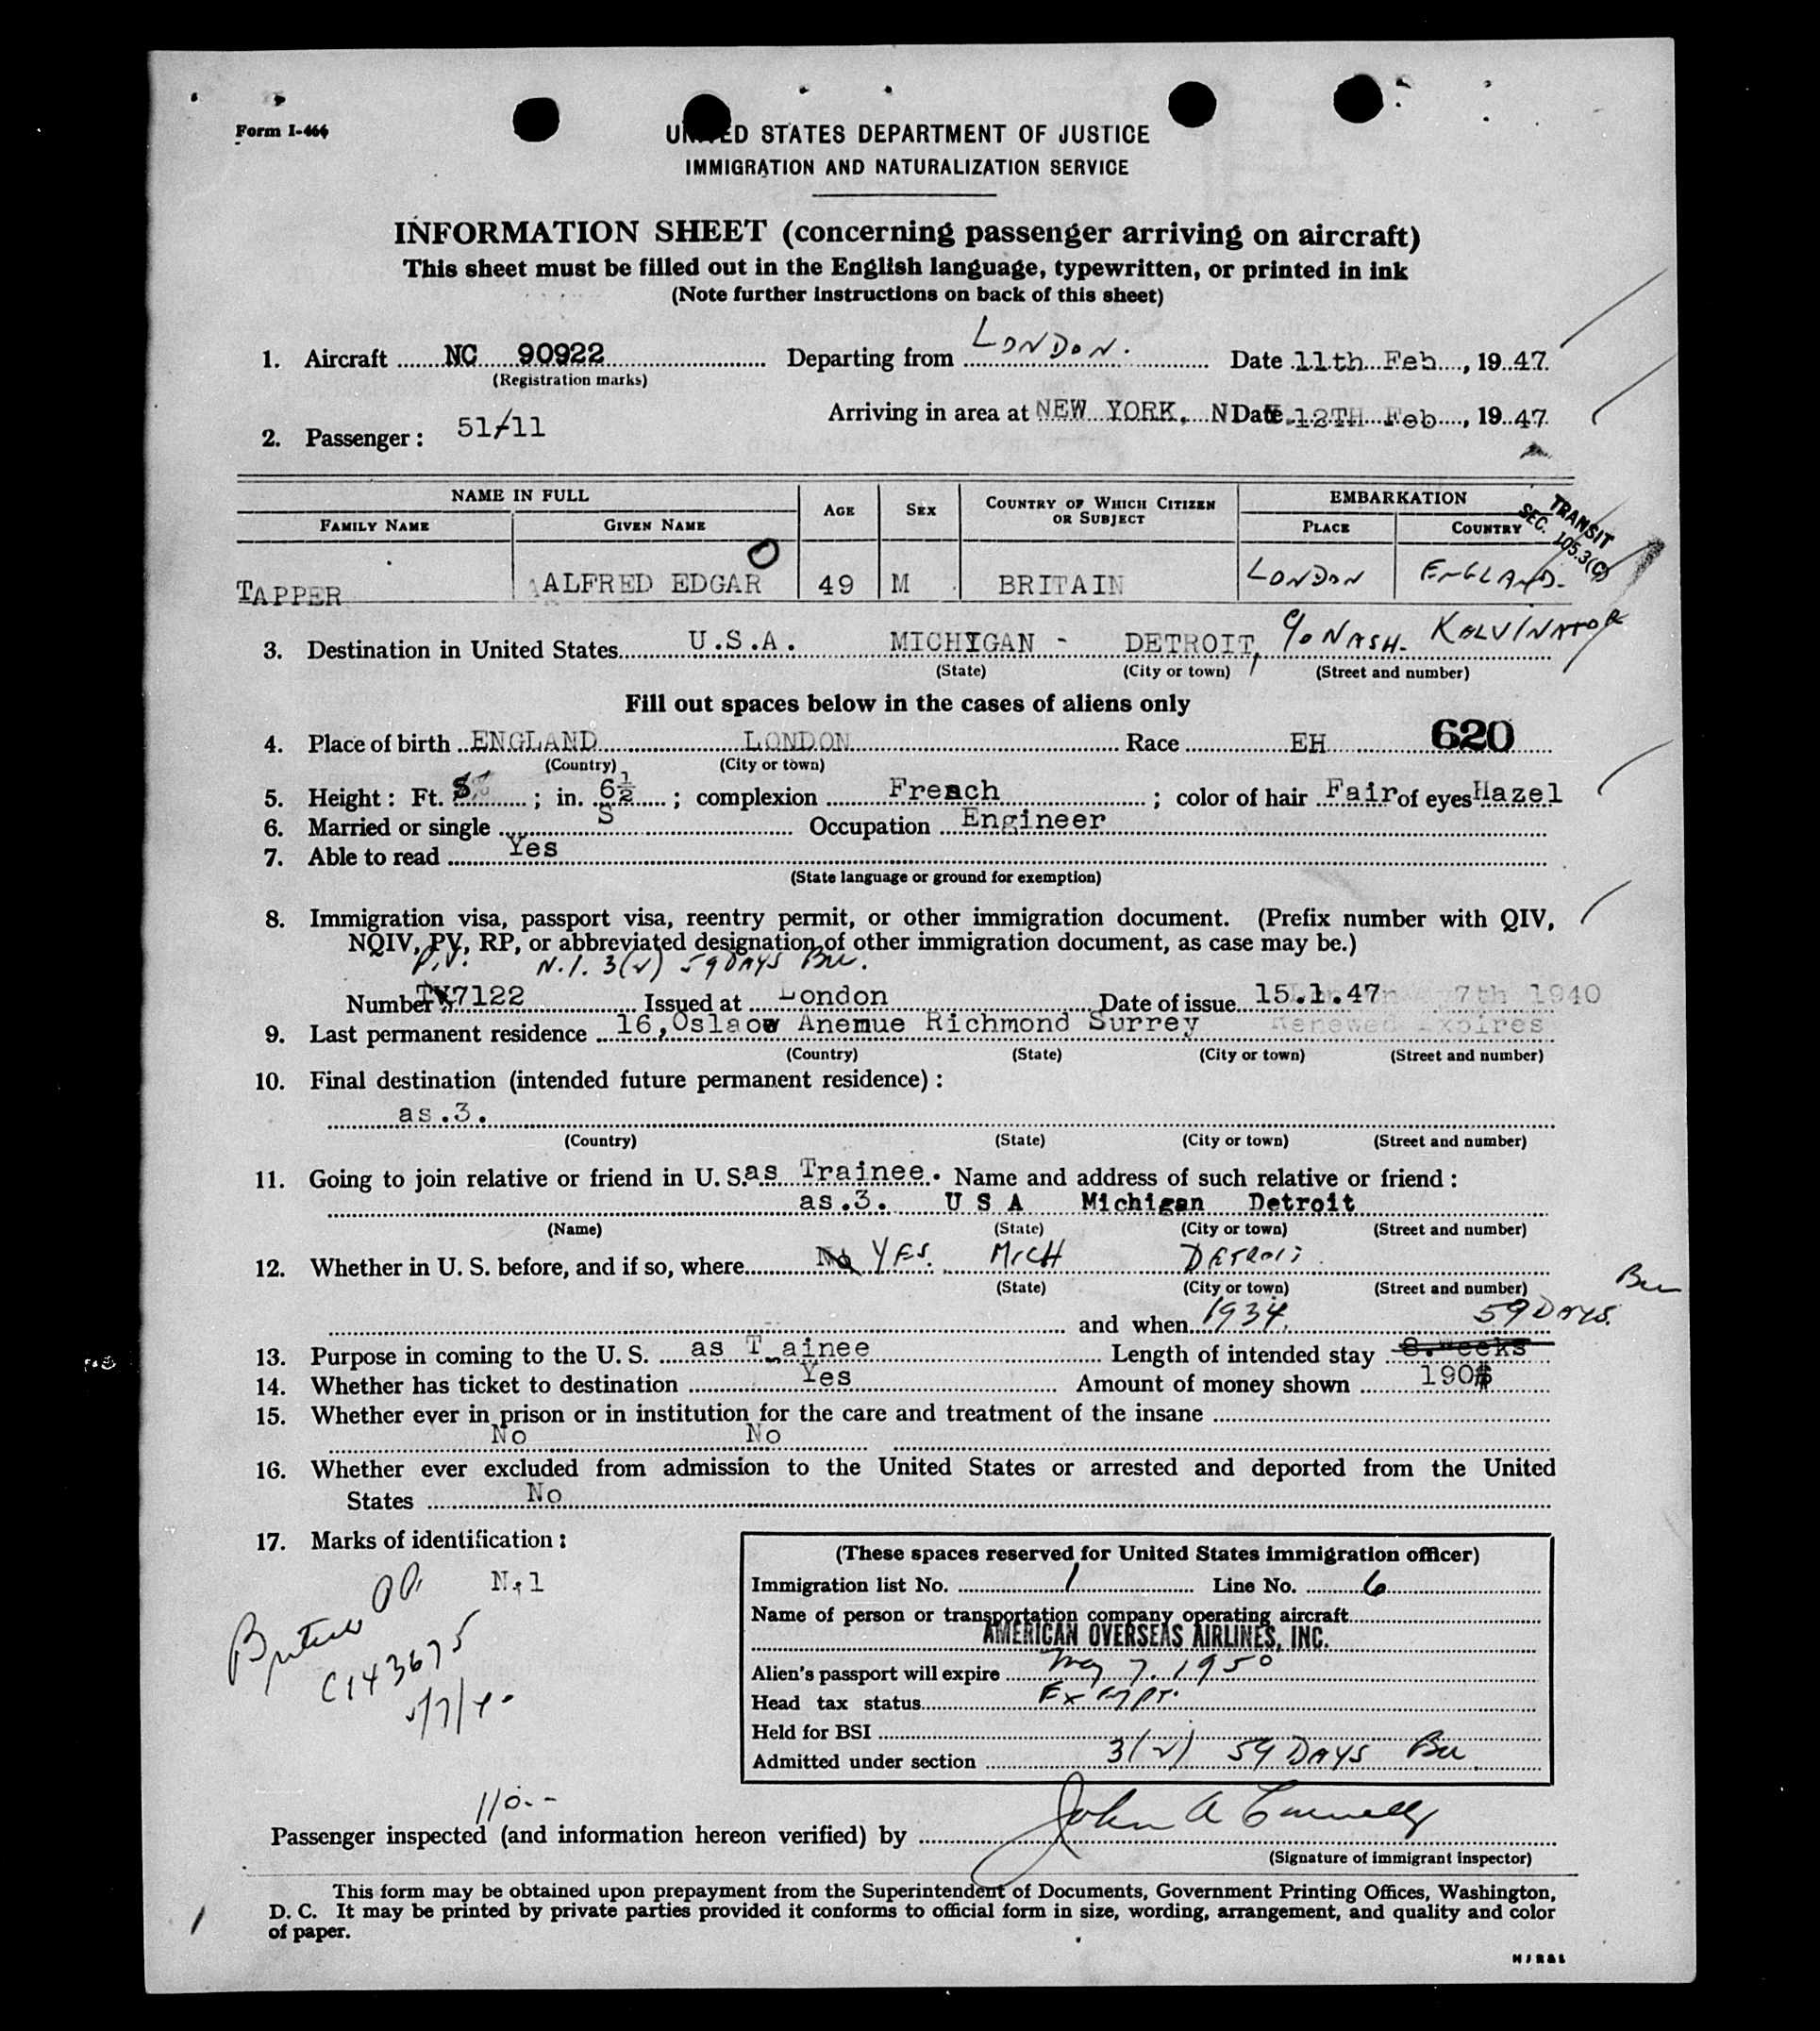 Form I-466
UNITED STATES DEPARTMENT OF JUSTICE
IMMIGRATION AND NATURALIZATION SERVICE
INFORMATION SHEET (concerning passenger arriving on aircraft)
This sheet must be filled out in the English language, typewritten, or printed in ink
(Note further instructions on back of this sheet)
1. Aircraft NC 90922 Departing from LONDON. Date 11th Feb, 1947
(Registration marks)
Arriving in area at NEW YORK, N Date 12TH Feb, 1947
2. Passenger: 51-11
NAME IN FULL AGE SEX COUNTRY OF WHICH CITIZEN OR SUBJECT EMBARKATION
FAMILY NAME GIVEN NAME PLACE COUNTRY
TRANSIT
SEC. 105.3(C)
TAPPER ALFRED EDGAR 49 M BRITAIN LONDON ENGLAND-
3. Destination in United States U.S.A. MICHIGAN - DETROIT, C/O NASH- KELVINATOR
(State) (City or town) (Street and number)
Fill out spaces below in the cases of aliens only
4. Place of birth ENGLAND LONDON Race EH 620
(Country) (City or town)
5. Height: Ft. 5; in. 6½; complexion Freach; color of hair Fair of eyes Hazel
6. Married or single S Occupation Engineer
7. Able to read Yes
(State language or ground for exemption)
8. Immigration visa, passport visa, reentry permit, or other immigration document. (Prefix number with QIV,
NQIV, PV, RP, or abbreviated designation of other immigration document, as case may be.)
P.V. N.I. 3(2) 59 DAYS
Number 7122 Issued at London Date of issue 15.1.47 7th 1940
9. Last permanent residence 16, Oslaow Anemue Richmond Surrey Renewed Expires
(Country) (State) (City or town) (Street and number)
10. Final destination (intended future permanent residence):
as.3.
(Country) (State) (City or town) (Street and number)
11. Going to join relative or friend in U. S. as Trainee. Name and address of such relative or friend:
as.3. U S A Michigan Detroit
(Name) (State) (City or town) (Street and number)
12. Whether in U. S. before, and if so, where No YES. MICH DETROIT
(State) (City or town) (Street and number)
and when 1934. 59 DAYS.
13. Purpose in coming to the U. S. as T ainee Length of intended stay 8. weeks
14. Whether has ticket to destination Yes Amount of money shown 190$
15. Whether ever in prison or in institution for the care and treatment of the insane
No No
16. Whether ever excluded from admission to the United States or arrested and deported from the United
States No
17. Marks of identification:
N.1
C143675
5/7/40
(These spaces reserved for United States immigration officer)
Immigration list No. 1 Line No. 6
Name of person or transportation company operating aircraft
AMERICAN OVERSEAS AIRLINES, INC.
Alien's passport will expire May 7. 1950
Head tax status Exempt.
Held for BSI
Admitted under section 3(2) 59 DAYS
110.-
Passenger inspected (and information hereon verified) by John A Connelly
(Signature of immigrant inspector)
This form may be obtained upon prepayment from the Superintendent of Documents, Government Printing Offices, Washington,
D. C. It may be printed by private parties provided it conforms to official form in size, wording, arrangement, and quality and color
of paper.